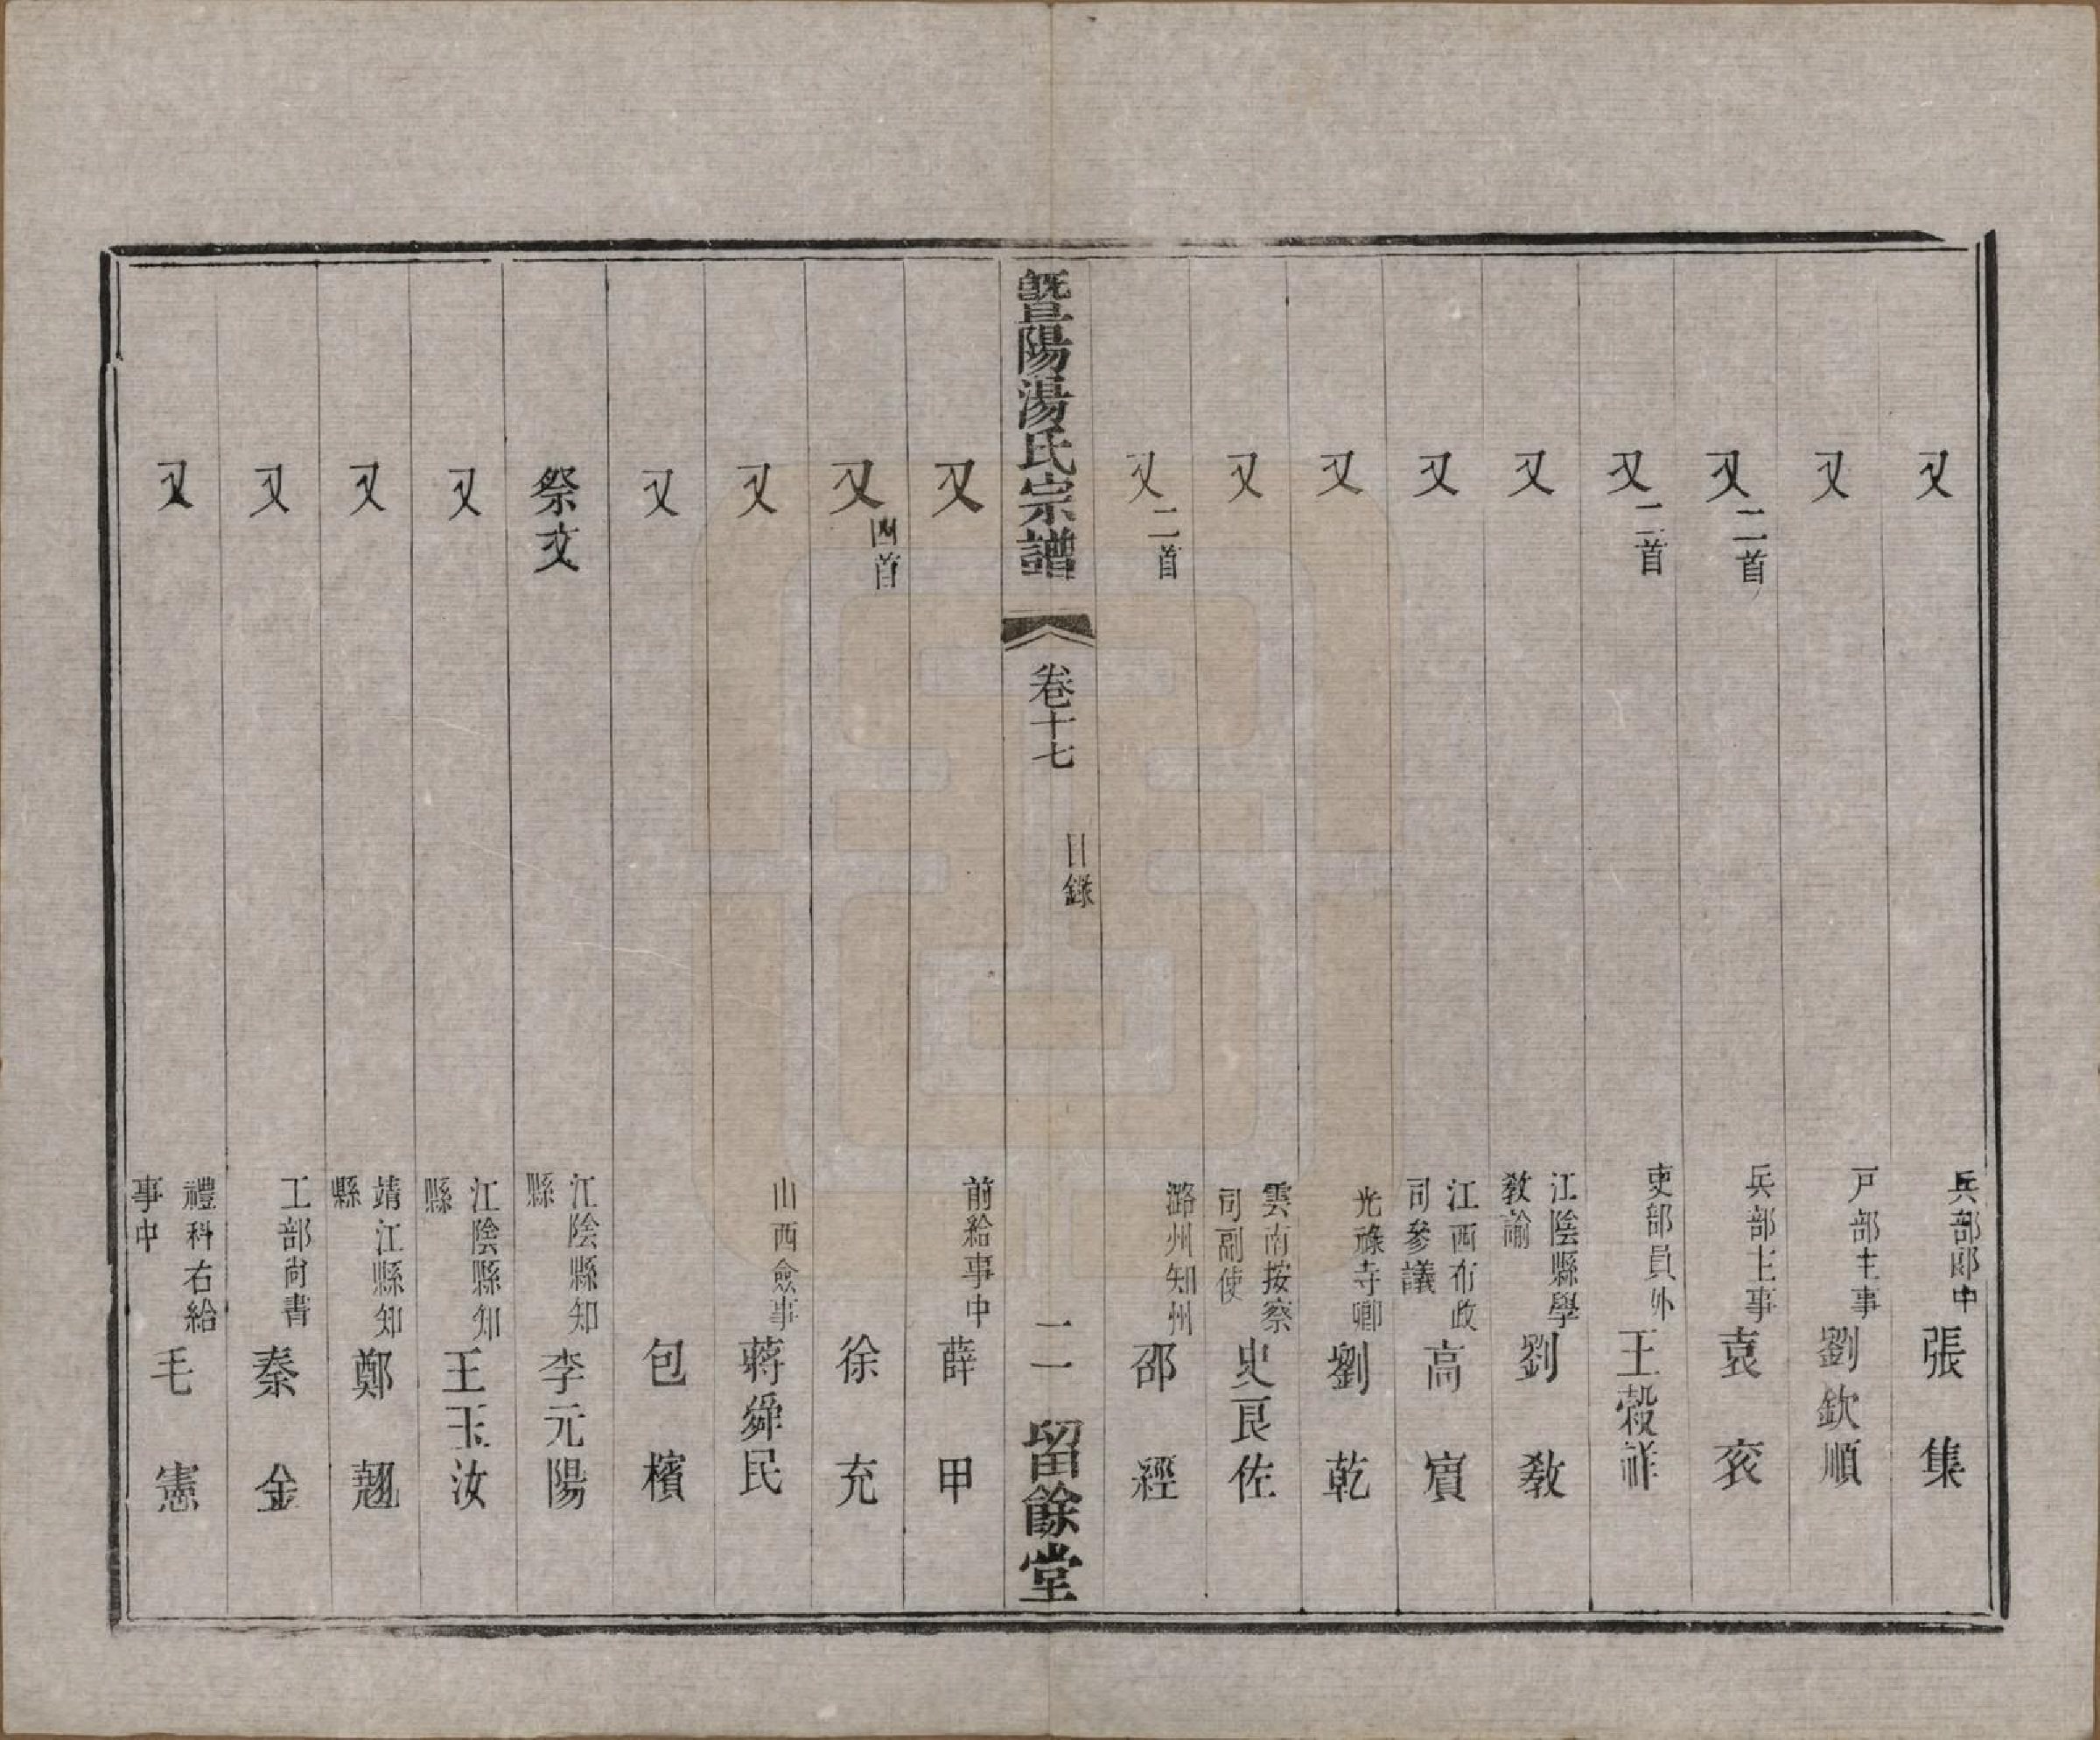 又 兵部郎中 張集
又 戸部主事 劉欽順
又二首 兵部主事 袁袞
又二首 吏部員外 王穀祥
又 江陰縣學教諭 劉教
又 江西布政司參議 高賓
又 光祿寺卿 劉乾
又 雲南按察司副使 史良佐
又二首 潞州知州 邵經
暨陽湯氏宗譜 卷十七 目錄 二 留餘堂
又 前給事中 薛甲
又四首 徐充
又 山西僉事 蔣舜民
又 包檳
祭文 江陰縣知縣 李元陽
又 江陰縣知縣 王玉汝
又 靖江縣知縣 鄭翹
又 工部尚書 秦金
又 禮科右給事中 毛憲